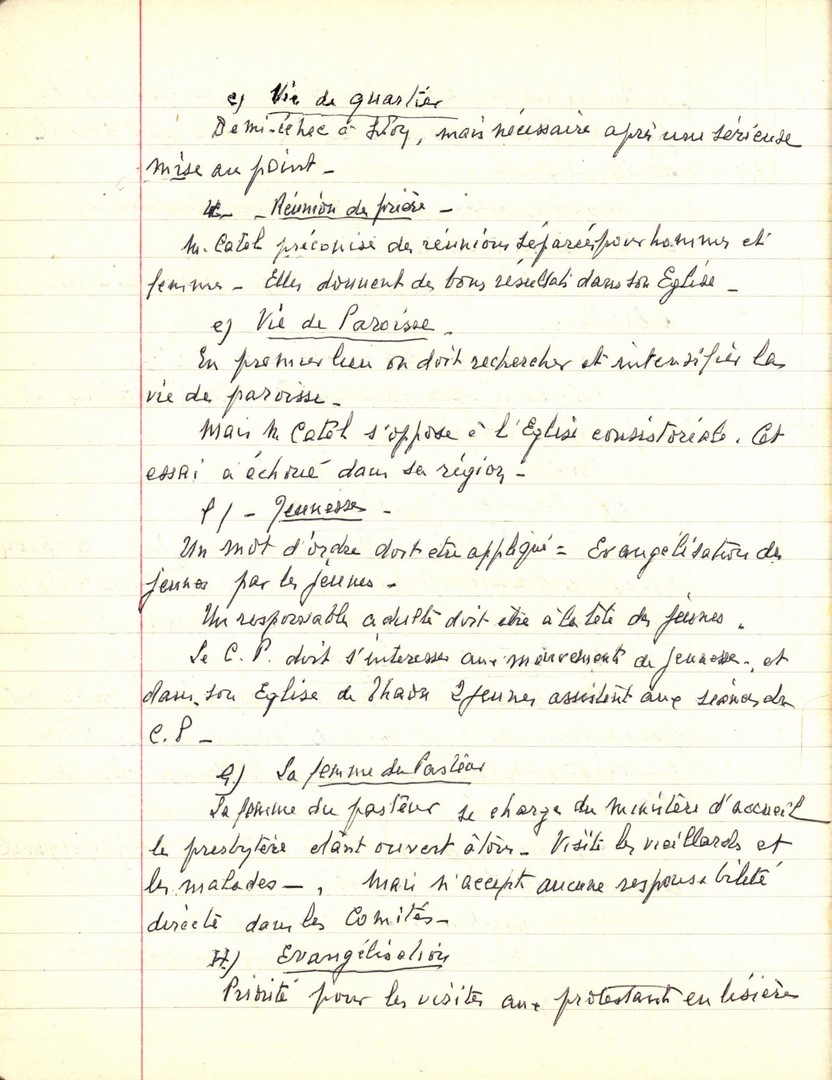 c) Vie de quartier
Demi-échec à , mais nécessaire après une sérieuse
mise au point -
- Réunion de prière -
M. Catel préconise des réunions séparées pour hommes et
femmes - Elles donnent de bons résultats dans son Eglise -
e) Vie de Paroisse -
En premier lieu on doit rechercher et intensifier la
vie de paroisse -
Mais M. Catel s'oppose à l'Eglise consistoriale. Cet
essai a échoué dans sa région -
f) - Jeunesse -
Un mot d'ordre doit etre appliqué = Evangélisation des
jeunes par les jeunes -
Un responsable adulte doit etre à la tête des jeunes .
Le C. P. doit s'interesser aux mouvements de jeunesse -, et
dans son Eglise de Thaon 2 jeunes assistent aux séances du
C. P -
G) La femme du Pasteur
La femme du pasteur se charge du ministère d'accueil
le presbytère étant ouvert à tous - Visite les vieillards et
les malades - , mais n'accepte aucune responsabilité
directe dans les Comités -
H) Evangélisation
Priorité pour les visites aux protestants en lisière